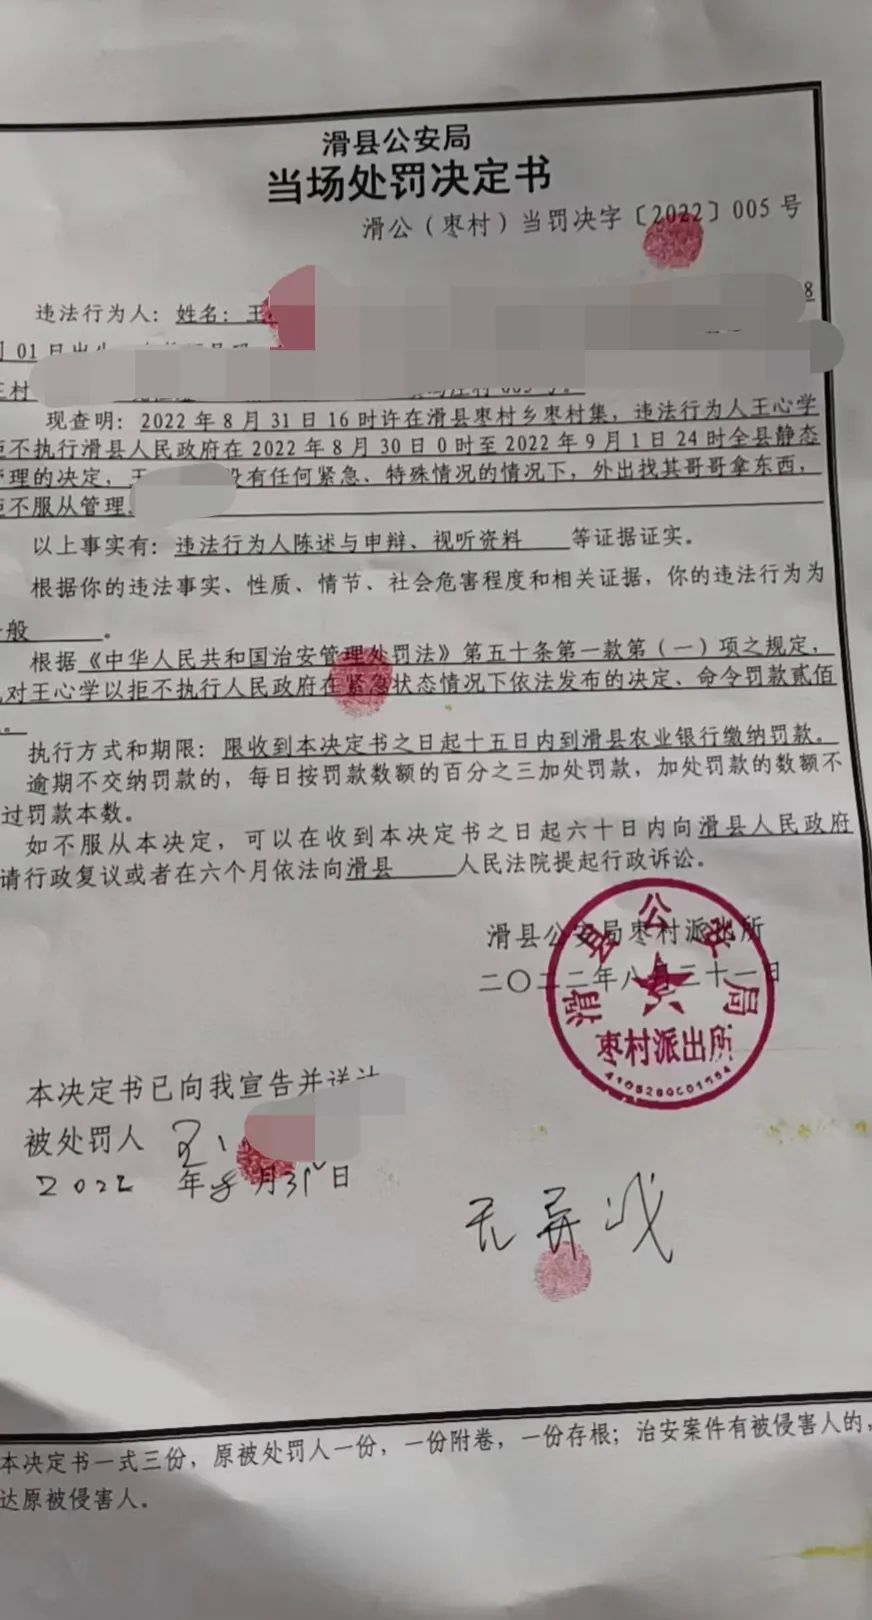 滑县公安局
当场处罚决定书
滑公（枣村）当罚决字〔2022〕005 号
违法行为人：姓名：王 8
01日出生
村
现查明：2022年8月31日16时许在滑县枣村乡枣村集，违法行为人王心学
不执行滑县人民政府在2022年8月30日0时至2022年9月1日24时全县静态
理的决定，王 没有任何紧急、特殊情况的情况下，外出找其哥哥拿东西，
不服从管理。
以上事实有：违法行为人陈述与申辩、视听资料 等证据证实。
根据你的违法事实、性质、情节、社会危害程度和相关证据，你的违法行为为
般 。
根据《中华人民共和国治安管理处罚法》第五十条第一款第（一）项之规定，
对王心学以拒不执行人民政府在紧急状态情况下依法发布的决定、命令罚款贰佰
。
执行方式和期限：限收到本决定书之日起十五日内到滑县农业银行缴纳罚款。
逾期不交纳罚款的，每日按罚款数额的百分之三加处罚款，加处罚款的数额不
过罚款本数。
如不服从本决定，可以在收到本决定书之日起六十日内向滑县人民政府
请行政复议或者在六个月依法向滑县 人民法院提起行政诉讼。
滑县公安局枣村派出所
二〇二二年八月三十一日
滑县公安局
枣村派出所
本决定书已向我宣告并送达
被处罚人 王
2022 年8月31日
无异议
本决定书一式三份，原被处罚人一份，一份附卷，一份存根；治安案件有被侵害人的，
达原被侵害人。